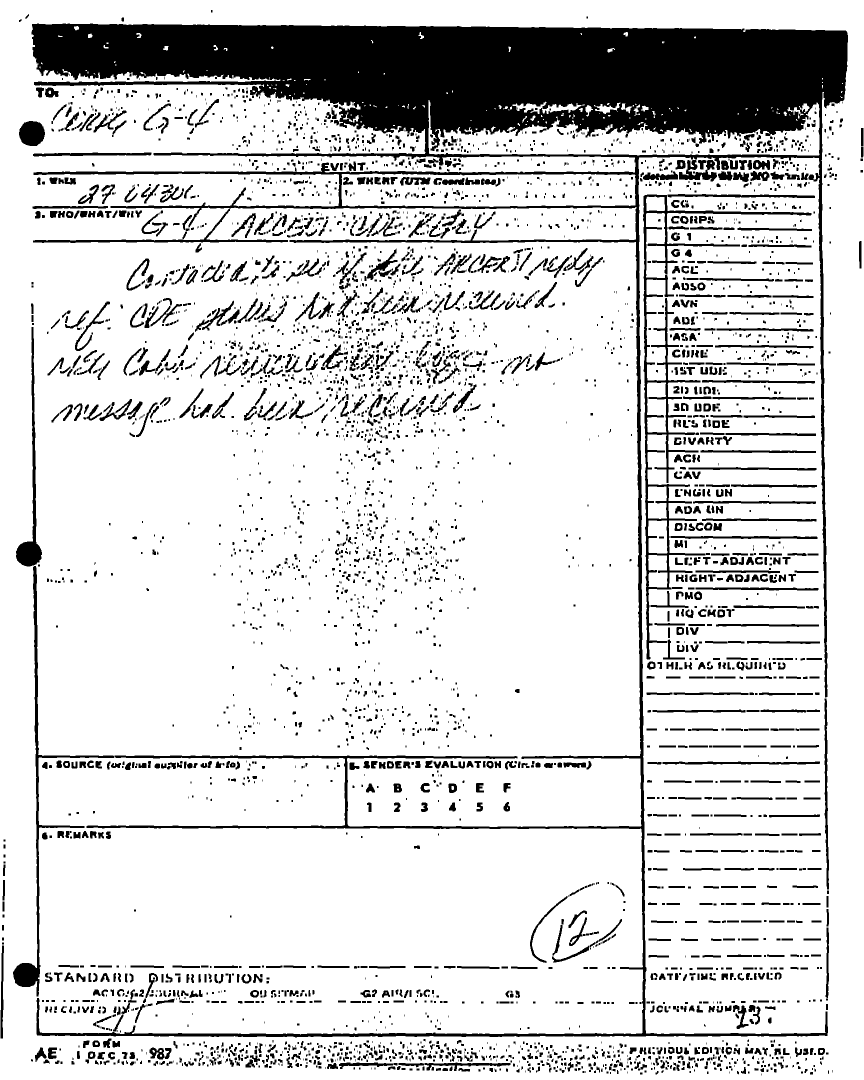 TO:
CORPS G-4
EVENT
1. WHEN
27 0430C
2. WHERE (UTM Coordinates)
3. WHO/WHAT/WHY
G-4 / ARCENT CDE REPLY
Contacted to see if the ARCENT reply
ref: CDE status had been received.
MSG Cobb reviewed log - no
message had been received.
4. SOURCE (original supplier of info)
5. SENDER'S EVALUATION (Circle answers)
A B C D E F
1 2 3 4 5 6
6. REMARKS
12
STANDARD DISTRIBUTION:
ACTG/G2 JOURNAL OB SITMAP G2 AIR/ G3
RECEIVED BY
DISTRIBUTION
CG
CORPS
G 1
G 4
ACE
ADSO
AVN
ADE
ASA
CBRE
1ST BDE
2D BDE
3D BDE
RES BDE
DIVARTY
ACR
CAV
ENGR BN
ADA BN
DISCOM
MI
LEFT-ADJACENT
RIGHT-ADJACENT
PMO
HQ CMDT
DIV
DIV
OTHER AS REQUIRED
DATE/TIME RECEIVED
JOURNAL NUMBER
AE FORM 1 DEC 75 987
PREVIOUS EDITION MAY BE USED.